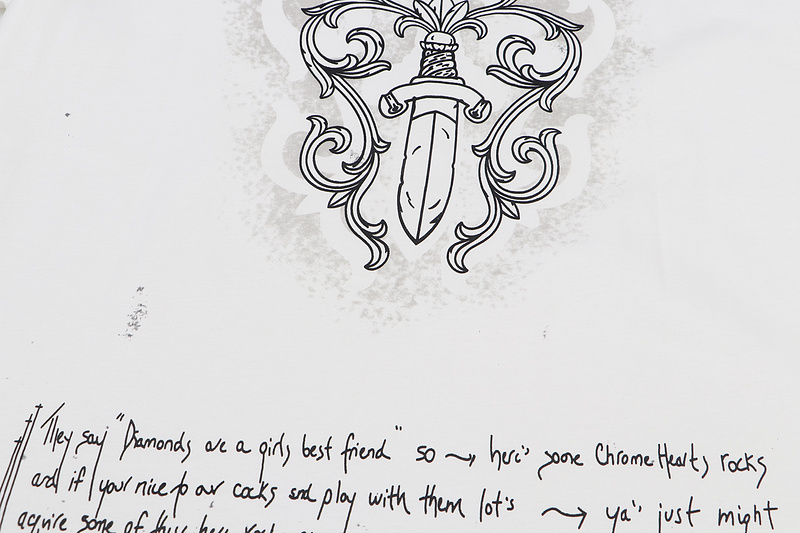 They say "Diamonds are a girls best friend" so → here's some Chrome Hearts rocks
and if your nice to our cocks and play with them lot's → ya' just might
aquire some of these here